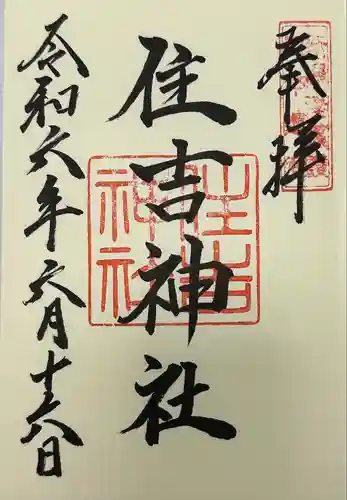 奉拝
住吉神社
令和六年六月十六日
住吉
神社